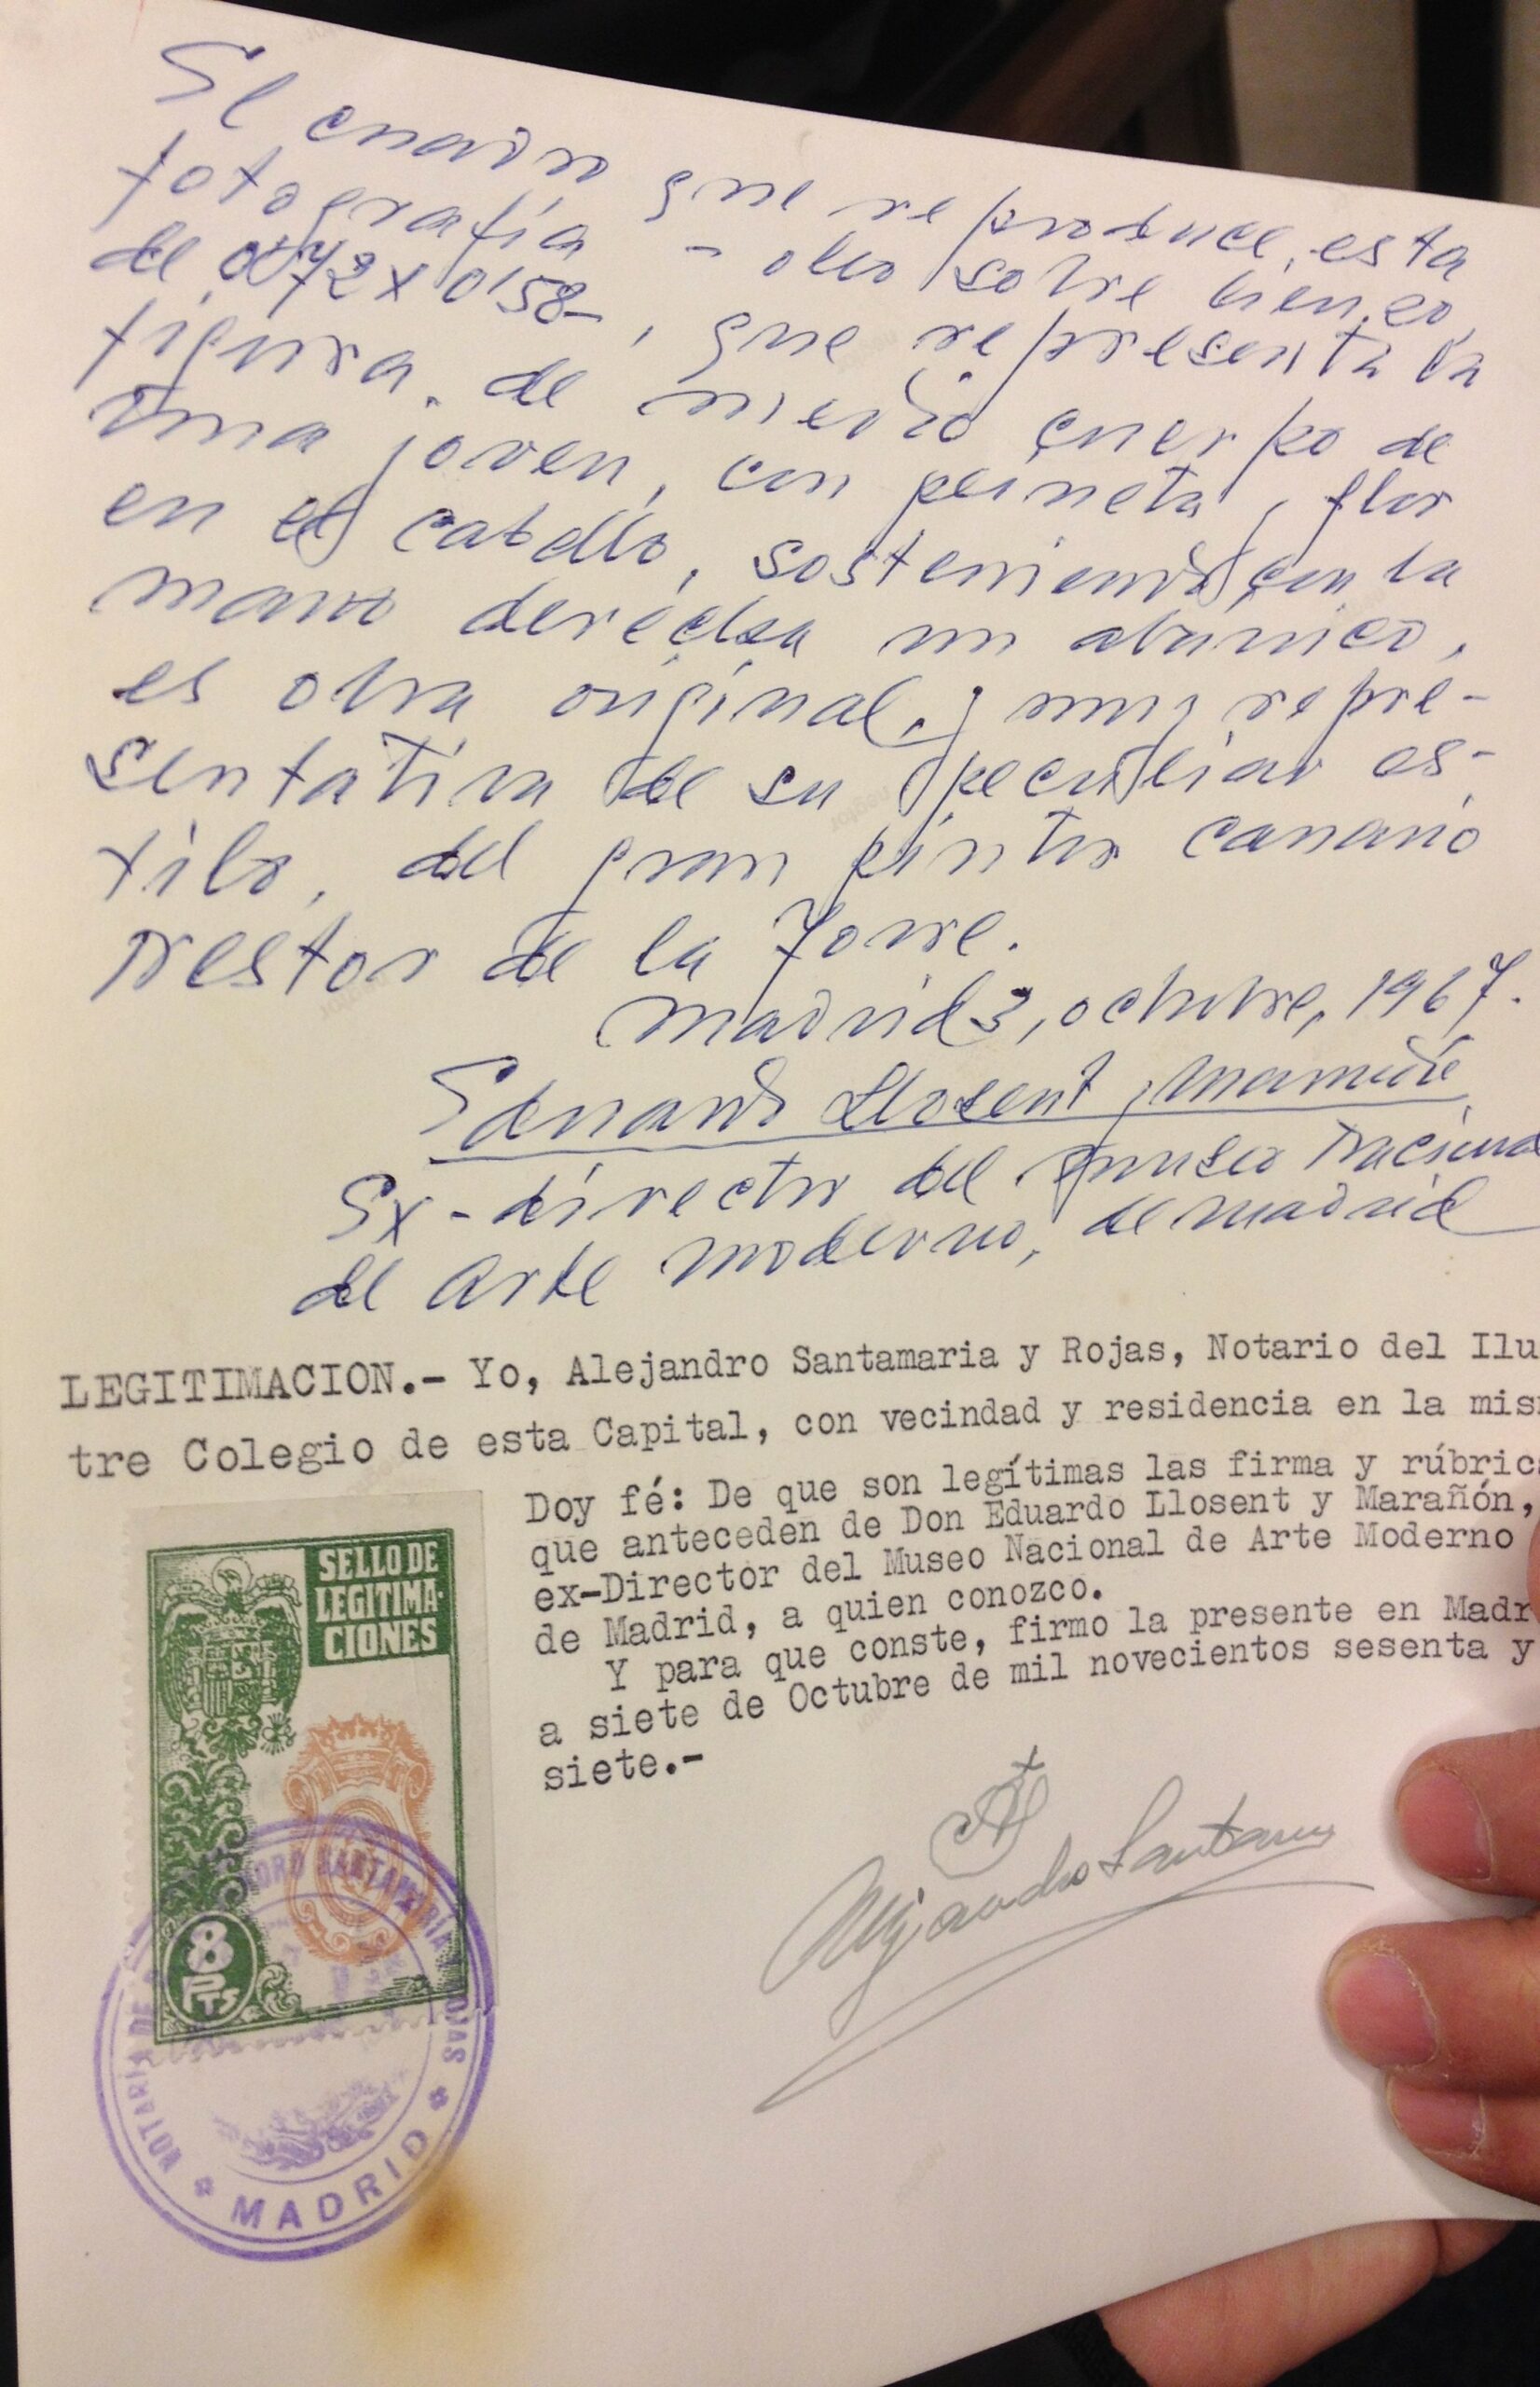 El cuadro que reproduce esta
fotografía - oleo sobre lienzo,
de 0'72 x 0'58 -, que representa la
figura de medio cuerpo de
una joven, con peineta y flor
en el cabello, sosteniendo con la
mano derecha un abanico,
es obra original, y muy repre-
sentativa de su peculiar es-
tilo, del gran pintor canario
Nestor de la Torre.
Madrid 3, octubre, 1967.
Eduardo Llosent y Marañón
Ex-director del Museo Nacional
de Arte Moderno, de Madrid
LEGITIMACION.- Yo, Alejandro Santamaria y Rojas, Notario del Ilu
tre Colegio de esta Capital, con vecindad y residencia en la mis
Doy fé: De que son legítimas las firma y rúbric
que anteceden de Don Eduardo Llosent y Marañón,
ex-Director del Museo Nacional de Arte Moderno
de Madrid, a quien conozco.
Y para que conste, firmo la presente en Madr
a siete de Octubre de mil novecientos sesenta y
siete.-
SELLO DE
LEGITIMA-
CIONES
8
PTS
Alejandro Santamaria
NOTARÍA DE ALEJANDRO SANTAMARÍA Y ROJAS
* MADRID *